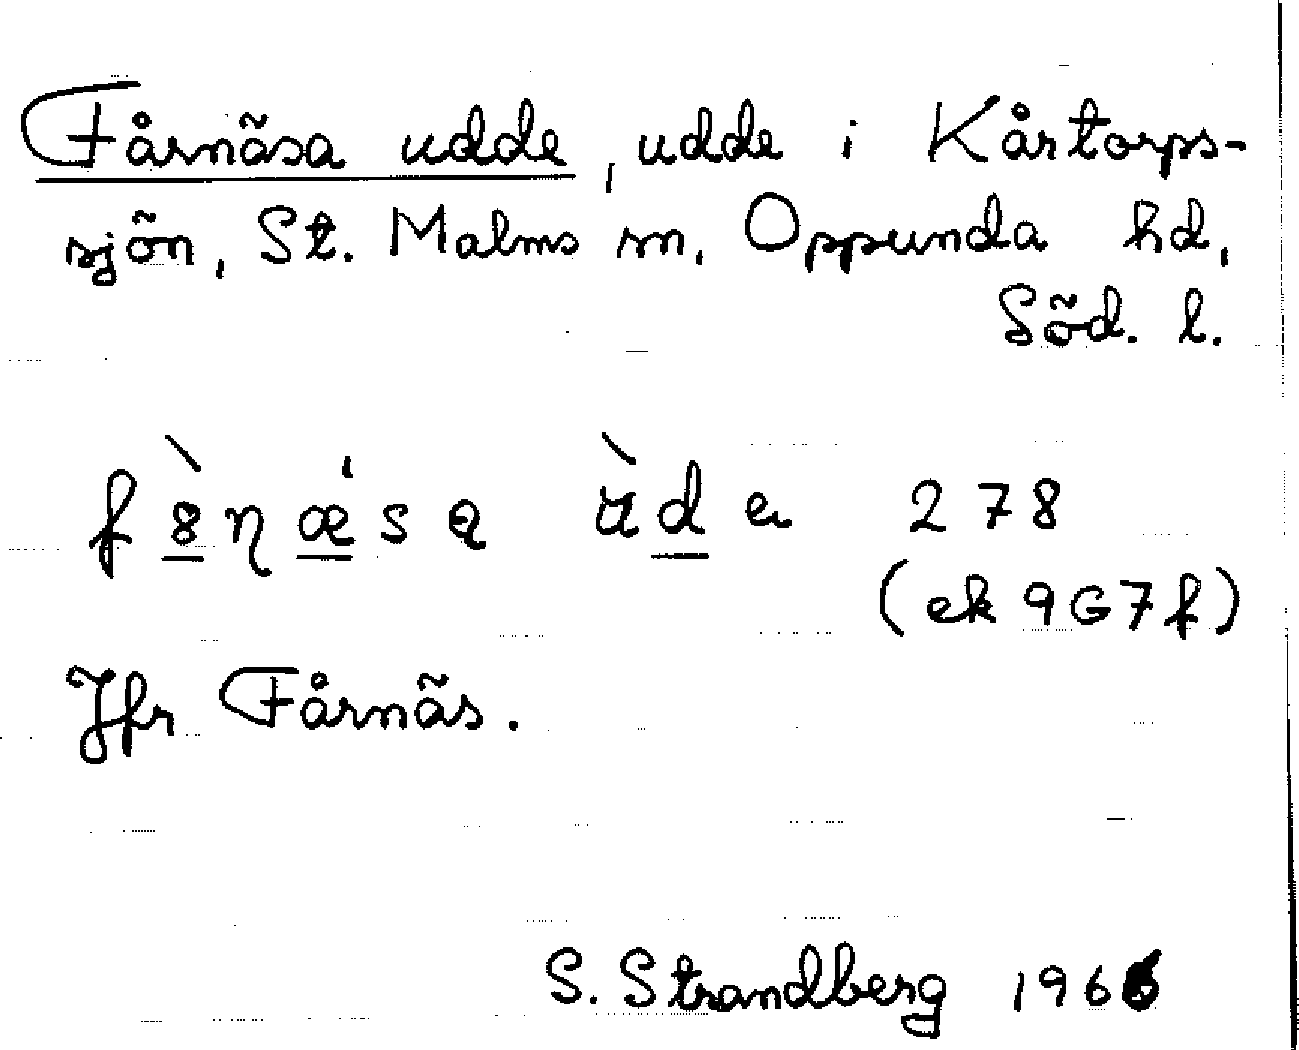 Fårnäsa udde, udde i Kårtorps-
sjön, St. Malms sn, Oppunda hd,
Söd. l.
278
(ek 9G7f)
Jfr Fårnäs.
S. Strandberg 1966